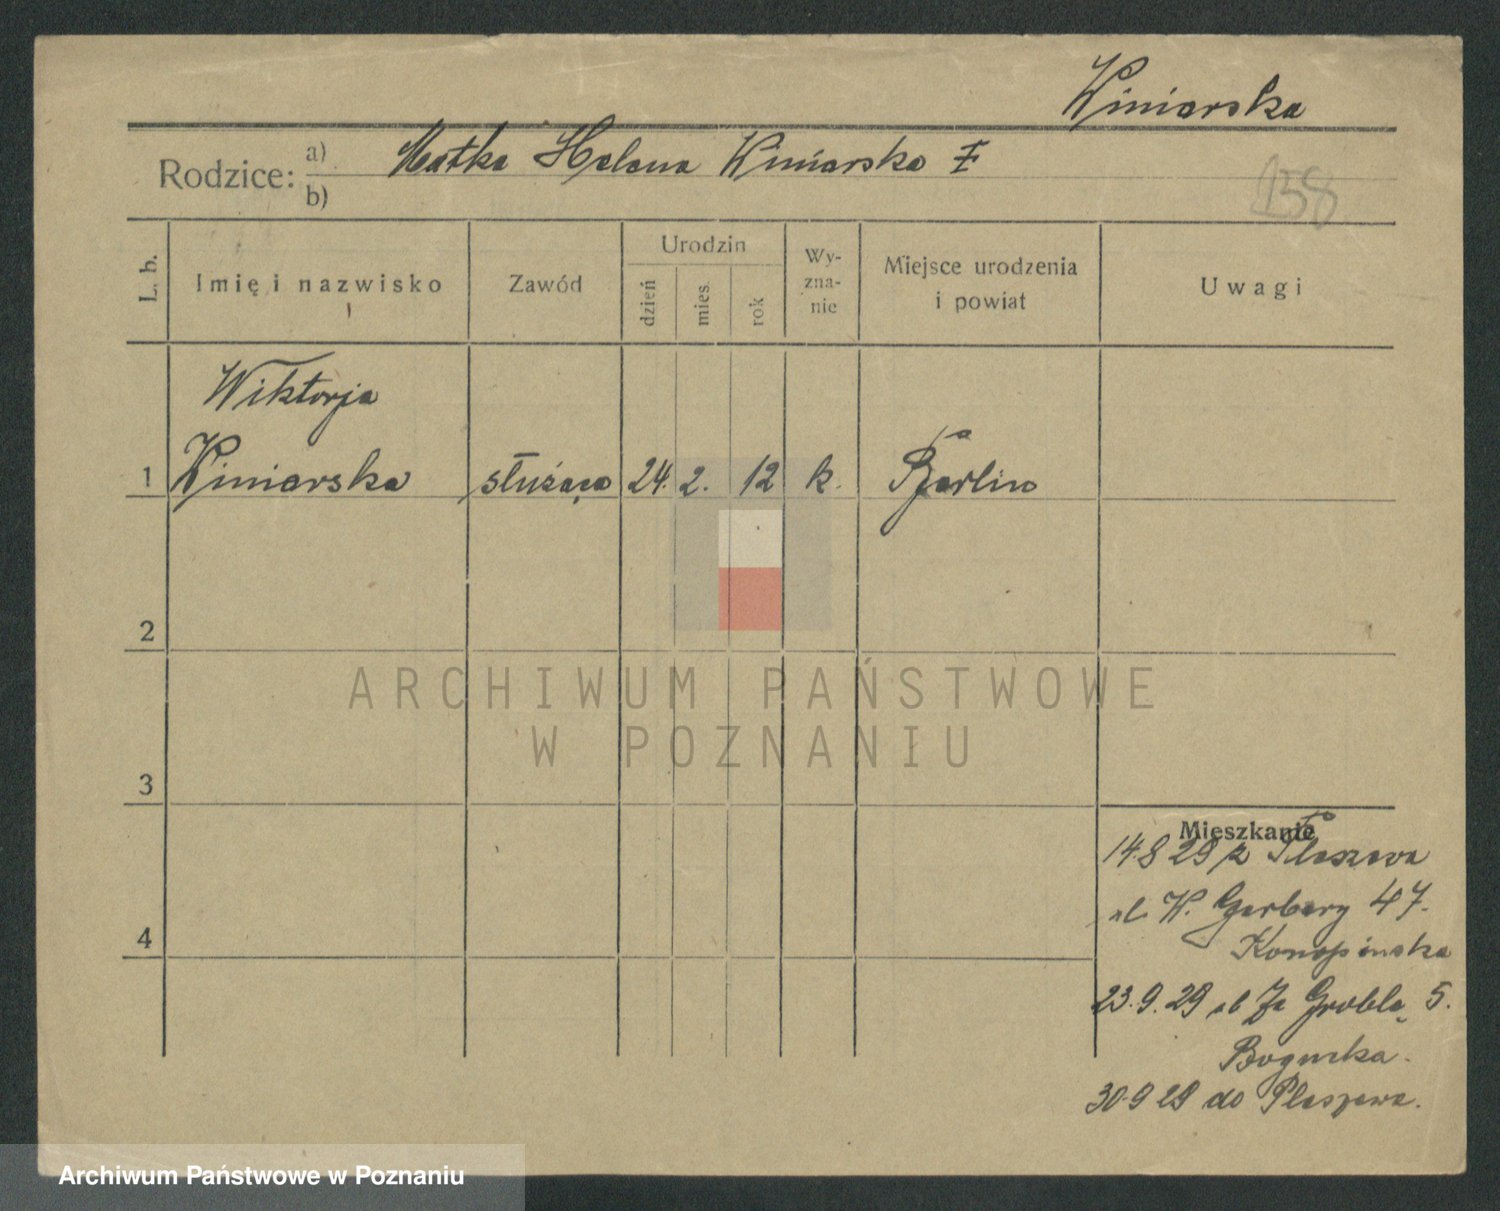 Winiarska
Rodzice: a) Matka Helena Winiarska
b)
158
L. b.
Imię i nazwisko
Zawód
Urodzin
dzień
mies.
rok
Wy-
zna-
nie
Miejsce urodzenia
i powiat
Uwagi
Wiktorja
1 Winiarska służąca 24. 2. 12 k. Berlin
2
3
4
ARCHIWUM PAŃSTWOWE
W POZNANIU
Mieszkanie
14.8 29 z Pleszewa
ul. W. Garbary 47.
Konopińska
23.9.29 ul Za Groblą 5.
Bogucka.
30.9 29 do Pleszewa.
Archiwum Państwowe w Poznaniu